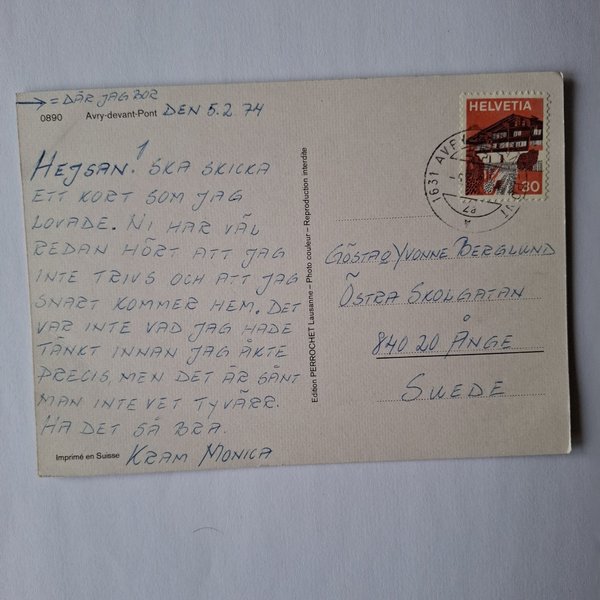 → = DÄR JAG BOR
0890 Avry-devant-Pont DEN 5.2 74
HEJSAN! SKA SKICKA
ETT KORT SOM JAG
LOVADE. NI HAR VÄL
REDAN HÖRT ATT JAG
INTE TRIVS OCH ATT JAG
SNART KOMMER HEM. DET
VAR INTE VAD JAG HADE
TÄNKT INNAN JAG ÅKTE
PRECIS, MEN DET ÄR SÅNT
MAN INTE VET TYVÄRR.
HA DET SÅ BRA.
KRAM MONICA
Imprimé en Suisse
Edition PERROCHET Lausanne – Photo couleur – Reproduction interdite
HELVETIA
30
1631 AVRY
GÖSTA o YVONNE BERGLUND
ÖSTRA SKOLGATAN
840 20 ÅNGE
SUEDE